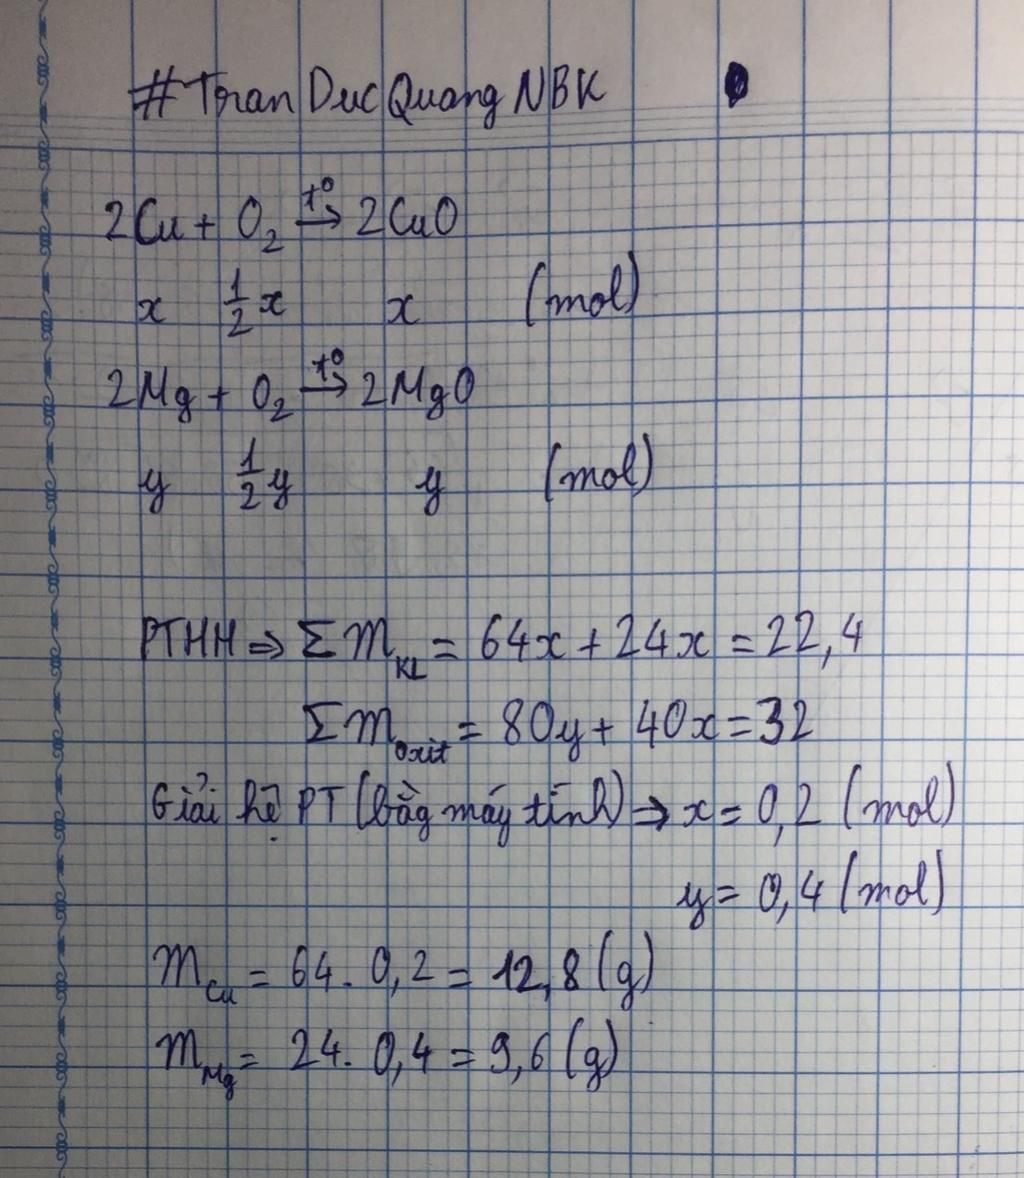 #TranDucQuangNBK
2Cu + O₂ →t° 2CuO
x ½x x (mol)
2Mg + O₂ →t° 2MgO
y ½y y (mol)
PTHH ⇒ Σm_KL = 64x + 24x = 22,4
Σm_oxit = 80y + 40x = 32
Giải hệ PT (bằg máy tính) → x = 0,2 (mol)
y = 0,4 (mol)
m_Cu = 64. 0,2 = 12,8 (g)
m_Mg = 24. 0,4 = 9,6 (g)